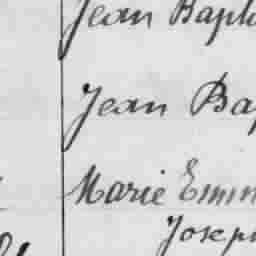 Jean Bapt
Jean Bap
Marie Emm
Josep